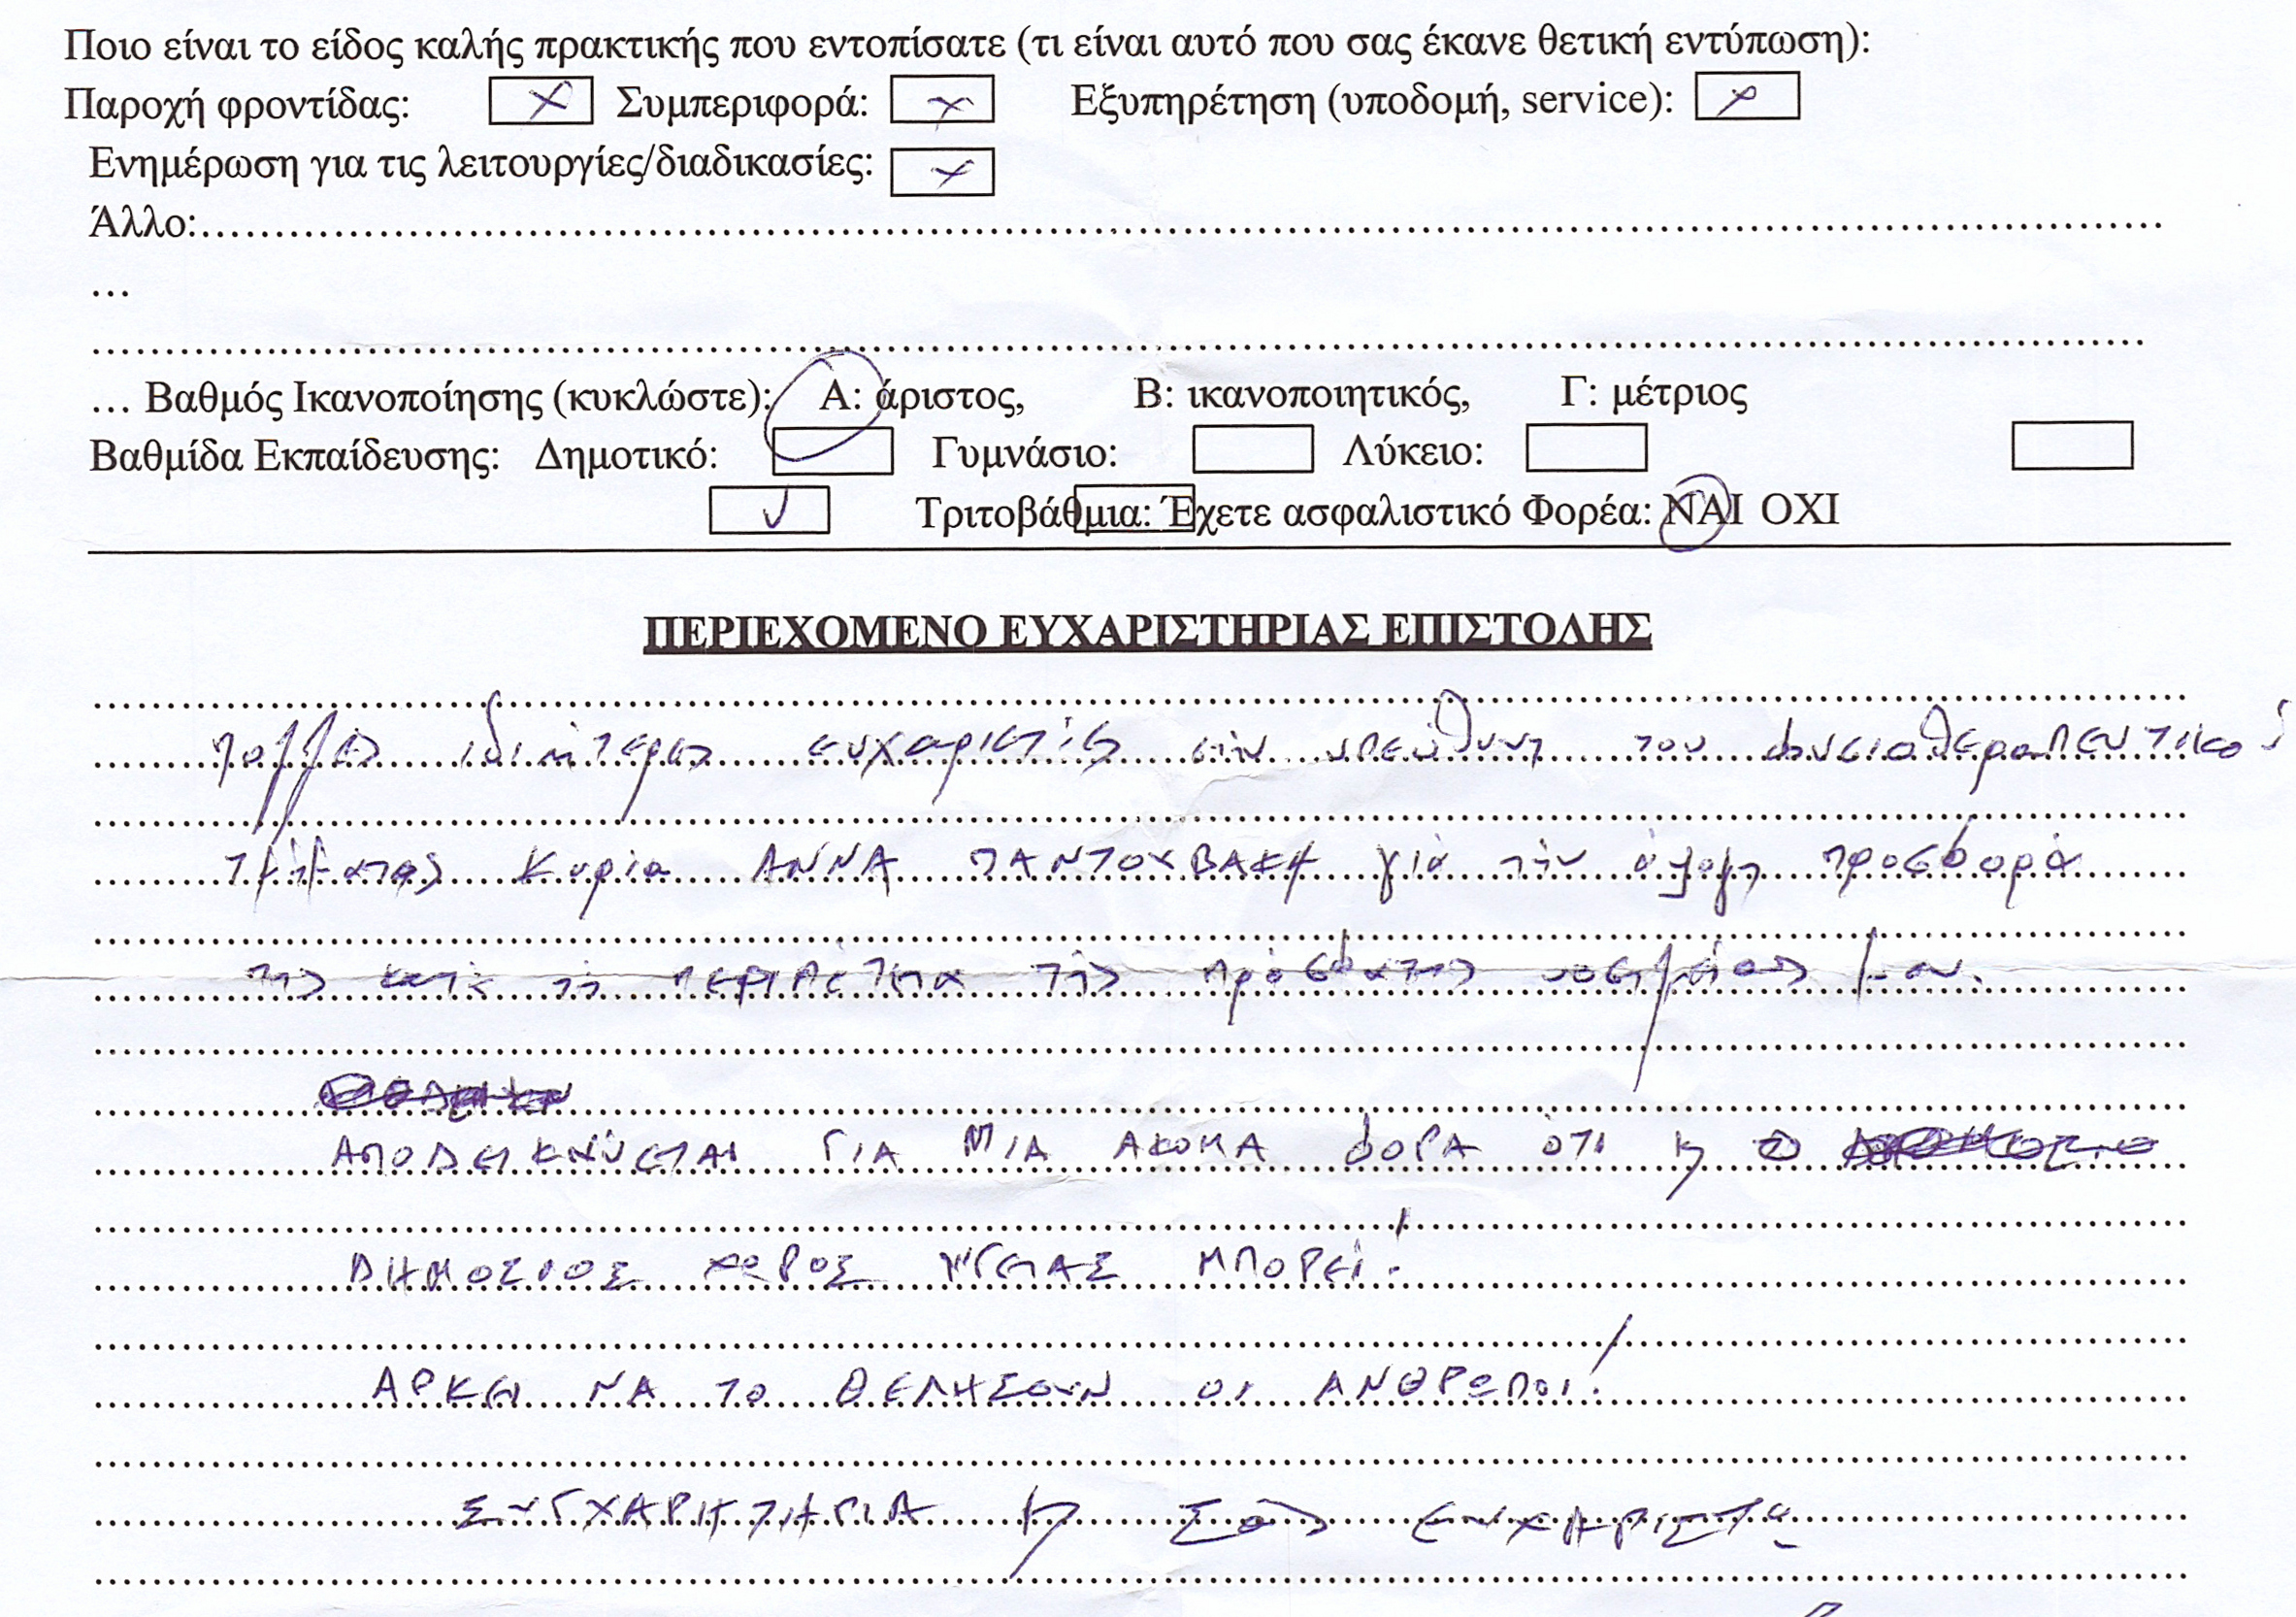 Ποιο είναι το είδος καλής πρακτικής που εντοπίσατε (τι είναι αυτό που σας έκανε θετική εντύπωση):
Παροχή φροντίδας: x Συμπεριφορά: x Εξυπηρέτηση (υποδομή, service): x
Ενημέρωση για τις λειτουργίες/διαδικασίες: x
Άλλο:........................................................................
...
........................................................................
... Βαθμός Ικανοποίησης (κυκλώστε): Α: άριστος, Β: ικανοποιητικός, Γ: μέτριος
Βαθμίδα Εκπαίδευσης: Δημοτικό: Γυμνάσιο: Λύκειο:
✓ Τριτοβάθμια: Έχετε ασφαλιστικό Φορέα: ΝΑΙ ΟΧΙ
ΠΕΡΙΕΧΟΜΕΝΟ ΕΥΧΑΡΙΣΤΗΡΙΑΣ ΕΠΙΣΤΟΛΗΣ
πολλές ιδιαίτερες ευχαριστίες στην υπεύθυνη του φυσιοθεραπευτικού
τμήματος κυρία ΑΝΝΑ ΠΑΝΤΟΥΒΑΚΗ για την άψογη προσφορά
της κατά τη περιπέτεια της πρόσφατης νοσηλείας μου.
ΑΠΟΔΕΙΚΝΥΕΤΑΙ ΓΙΑ ΜΙΑ ΑΚΟΜΑ ΦΟΡΑ ότι κ ο
ΔΗΜΟΣΙΟΣ ΧΩΡΟΣ ΥΓΕΙΑΣ ΜΠΟΡΕΙ!
ΑΡΚΕΙ ΝΑ ΤΟ ΘΕΛΗΣΟΥΝ ΟΙ ΑΝΘΡΩΠΟΙ!
ΣΥΓΧΑΡΗΤΗΡΙΑ κ Σας ΕΥΧΑΡΙΣΤΩ